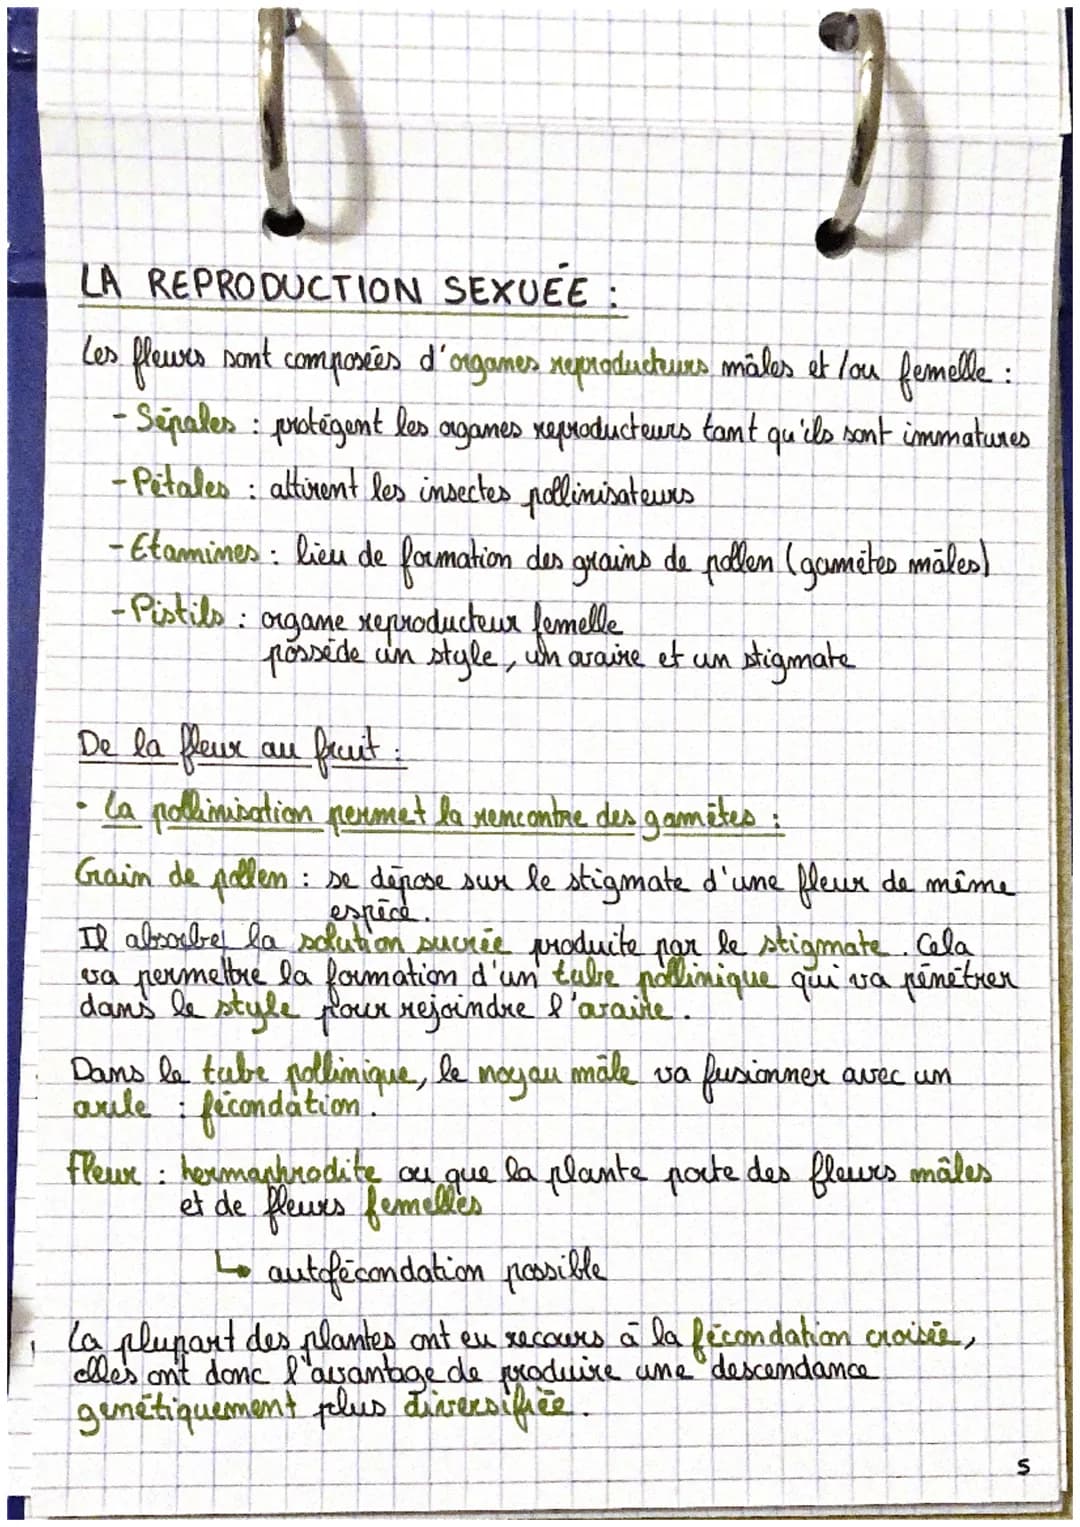 LA REPRODUCTION SEXUÉE :
Les fleurs sont composées d'organes reproducteurs mâles et/ou femelle :
- Sépales : protègent les organes reproducteurs tant qu'ils sont immatures
- Pétales : attirent les insectes pollinisateurs
- Etamines : lieu de formation des grains de pollen (gamètes mâles)
- Pistils : organe reproducteur femelle
possède un style, un ovaire et un stigmate
De la fleur au fruit :
• La pollinisation permet la rencontre des gamètes :
Grain de pollen : se dépose sur le stigmate d'une fleur de même
espèce.
Il absorbe la solution sucrée produite par le stigmate. Cela
va permettre la formation d'un tube pollinique qui va pénétrer
dans le style pour rejoindre l'ovaire.
Dans le tube pollinique, le noyau mâle va fusionner avec un
ovule : fécondation.
Fleur : hermaphrodite ou que la plante porte des fleurs mâles
et de fleurs femelles
↳ autofécondation possible
La plupart des plantes ont eu recours à la fécondation croisée,
elles ont donc l'avantage de produire une descendance
génétiquement plus diversifiée.
5